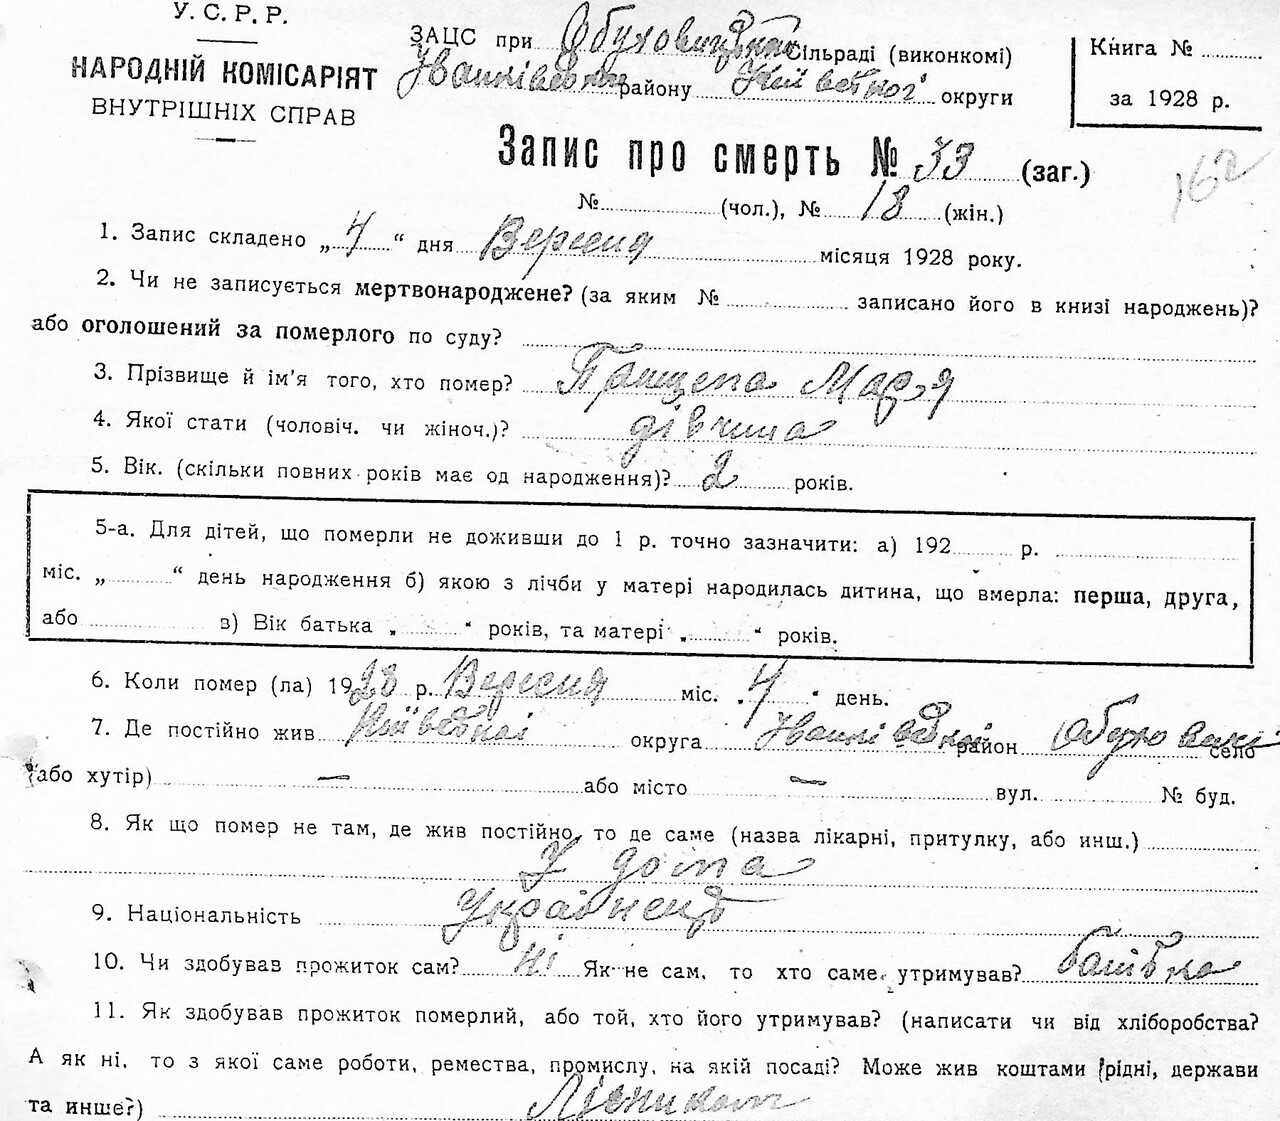 У. С. Р. Р.
НАРОДНІЙ КОМІСАРІЯТ
ВНУТРІШНІХ СПРАВ
ЗАЦС при Обуховицькій Сільраді (виконкомі)
Іванківського району Київської округи
Книга №
за 1928 р.
Запис про смерть № 33 (заг.)
162
№ (чол.), № 18 (жін.)
1. Запис складено „ 4 “ дня Вересня місяця 1928 року.
2. Чи не записується мертвонароджене? (за яким № записано його в книзі народжень)?
або оголошений за померлого по суду?
3. Прізвище й ім’я того, хто помер? Прищепа Марія
4. Якої стати (чоловіч. чи жіноч.)? дівчина
5. Вік. (скільки повних років має од народження)? 2 років.
5-а. Для дітей, що померли не доживши до 1 р. точно зазначити: а) 192 р.
міс. „ “ день народження б) якою з лічби у матері народилась дитина, що вмерла: перша, друга,
або в) Вік батька „ “ років, та матері „ “ років.
6. Коли помер (ла) 1928 р. Вересня міс. „ 4 “ день.
7. Де постійно жив Київської округа Іванківської район Обуховичі село
(або хутір) — або місто — вул. № буд.
8. Як що помер не там, де жив постійно, то де саме (назва лікарні, притулку, або инш.)
У дома
9. Національність Українець
10. Чи здобував прожиток сам? Ні Як не сам, то хто саме утримував? батько
11. Як здобував прожиток померлий, або той, хто його утримував? (написати чи від хліборобства?
А як ні, то з якої саме роботи, ремества, промислу, на якій посаді? Може жив коштами (рідні, держави
та инше?) Лісником